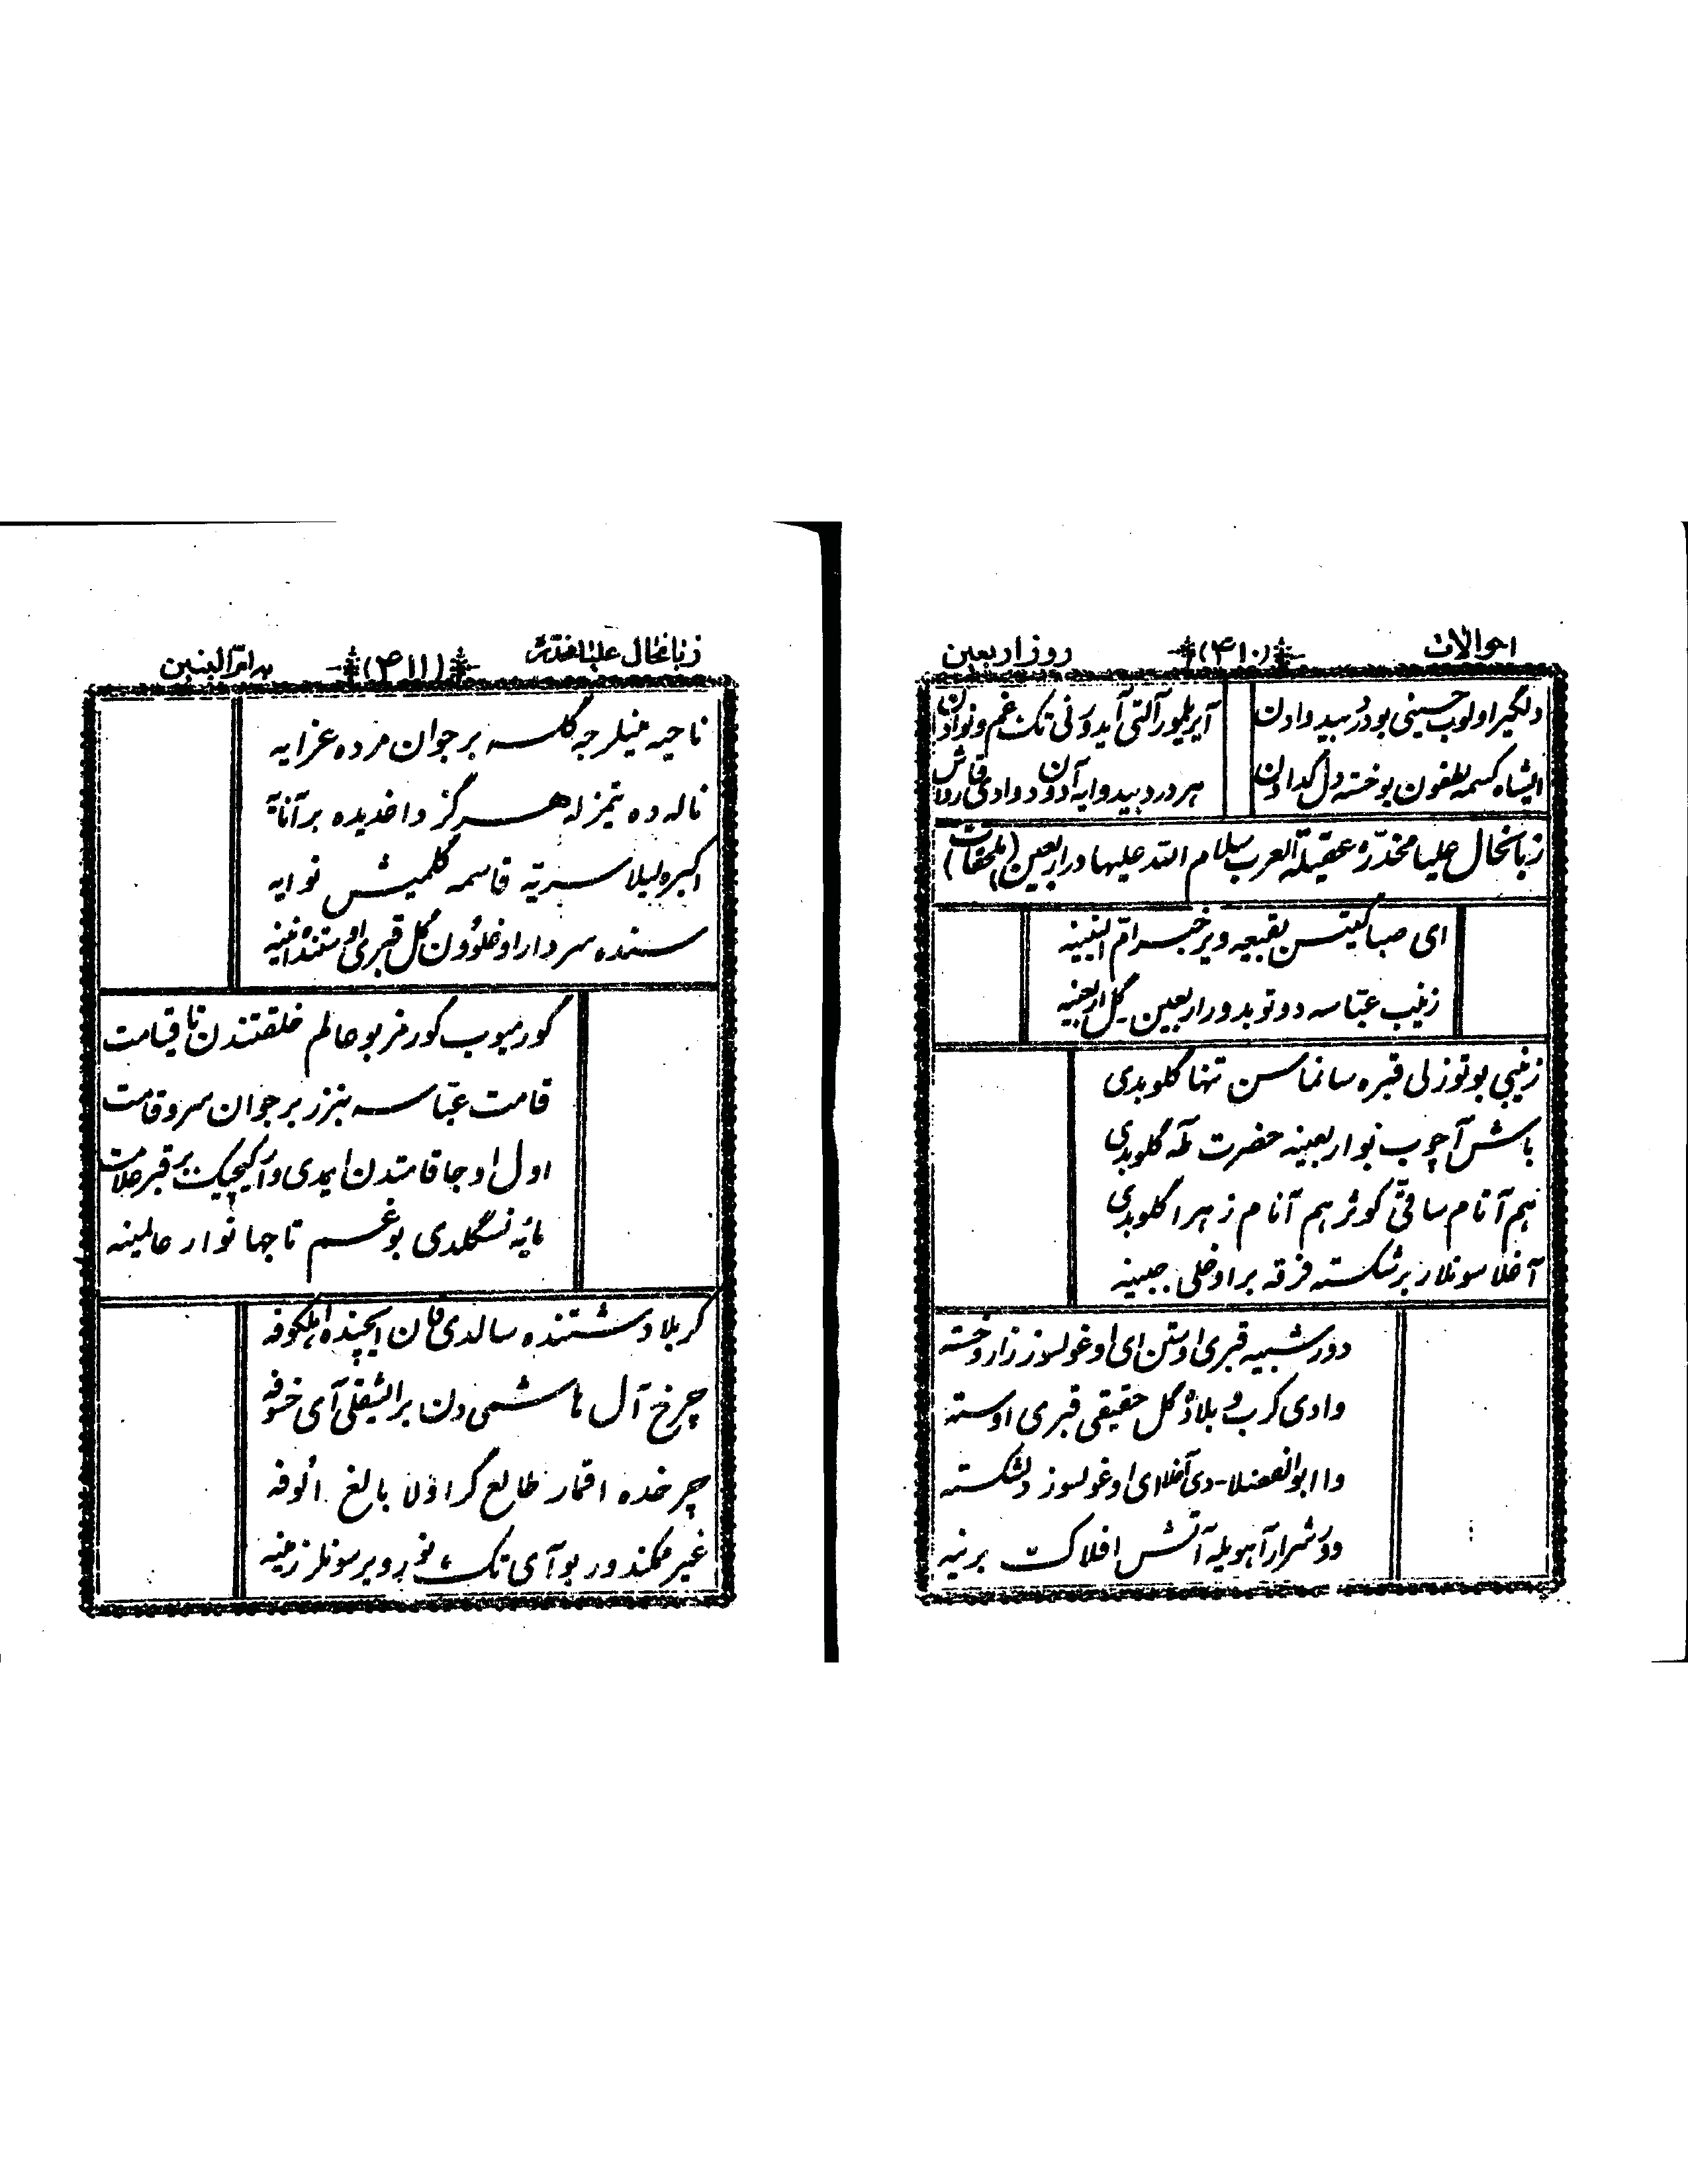 احوالات (۴۱۰) روز اربعین
دلگیر اولوب حسینی بو درد بیدوادن
آیریلیور آلتی آیدورنی تک غم و نوادن
ایشاه کسمه لطفون بو خسته دل گدادن
هر درد بیدوایه آدون دوادی قارداش
زبانحال علیا مخدّره عقیلة العرب سلام الله علیها در اربعین (ملحقات)
ای صبا گیتسن بقیعه ویر خبر امّ البنینه
زینب عبّاسه دوتوبدور اربعین گل اربعینه
زینبی بو توزلی قبره سانماسن تنها گلوبدی
باش آچوب بو اربعینه حضرت طه گلوبدی
هم آتام ساقیّ کوثر هم آنام زهرا گلوبدی
آخلاسونلار بر شکسته فرقه بر اوخلی جبینه
دور شبیه قبری اوستن ای اوغولسوز زار و خسته
وادی کرب و بلاده گل حقیقی قبری اوسته
وا ابوالفضلا دی آخلا ای اوغولسوز دلشکسته
وور شرار آهویله آتش افلاک برینه
زبانحال علیا مخدّره (۴۱۱) به امّ البنین
ناحیه منیلرجه گلسه بر جوان مرده عزایه
ناله ده یتمز له هرگز داخدیده بر آنایه
اکبره لیلا سریّه قاسمه گلمیش نوایه
سنده سردار اوخلوون گل قبری اوستنده انینه
گورمیوب گورمز بو عالم خلقتندن تا قیامت
قامت عبّاسه بنزر بر جوان سرو قامت
اول اوجا قامتدن ایمدی وار کیچیک بر قبر علامت
تایه نسگلدی بو غم تا جهانوار عالمینه
کربلا دشتنده سالدی قان ایچنده اهلکوفه
چرخ آل هاشمی دن بر ایشیقلی آی خسوفه
چرخده اقمار طالع گر اولا بالغ الوفه
غیر ممکندور بو آی تک نور ویرسونلر زمینه